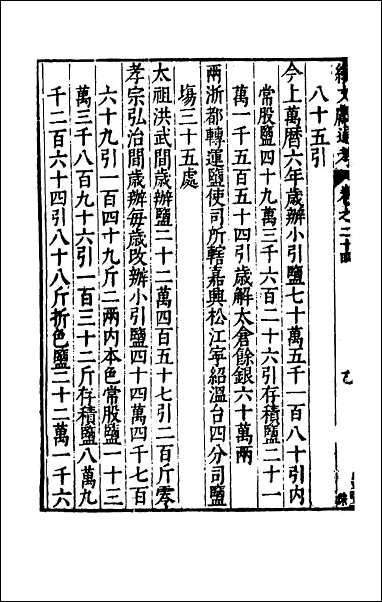 續文獻通考 卷之二十四
八十五引
今上萬曆六年歲辦小引鹽七十萬五千一百八十引内
常股鹽四十九萬三千六百二十六引存積鹽二十一
萬一千五百五十四引歲解太倉餘銀六十萬兩
兩浙都轉運鹽使司所轄嘉興松江寧紹溫台四分司鹽
塲三十五處
太祖洪武間歲辦鹽二十二萬四百五十七引二百斤零
孝宗弘治間歲辦每歲改辦小引鹽四十四萬四千七百
六十九引一百四十九斤二兩内本色常股鹽一十三
萬三千八百九十六引一百三十二斤存積鹽八萬九
千二百六十四引八十八斤折色鹽二十二萬一千六